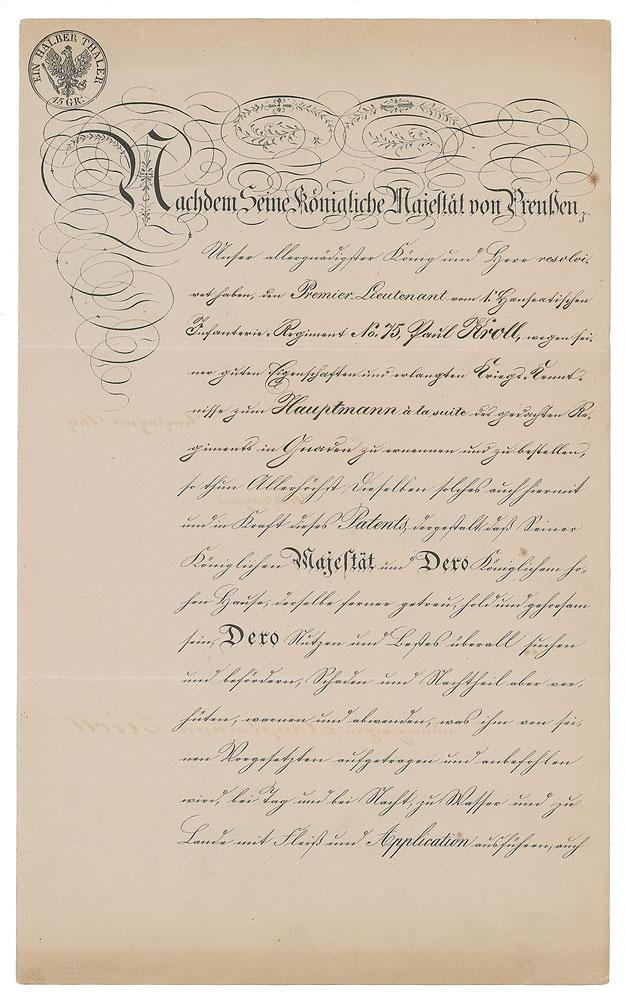 EIN HALBER THALER
15 GR.
Nachdem Seine Königliche Majestät von Preußen,
Unser allergnädigster König und Herr resolvi-
ret haben, den Premier-Lieutenant vom 1. Hanseatischen
Infanterie-Regiment No. 75, Paul Kroll, wegen sei-
ner guten Eigenschaften und erlangten Kriegs-Kennt-
nisse zum Hauptmann à la suite des gedachten Re-
giments in Gnaden zu ernennen und zu bestellen,
so thun Allerhöchst Dieselben solches auch hiermit
und in Kraft dieses Patents, dergestalt, daß Seiner
Königlichen Majestät und Dero Königlichem ho-
hen Hause, derselbe ferner getreu, hold und gehorsam
sein, Dero Nutzen und Bestes überall suchen
und befördern, Schaden und Nachtheil aber ver-
hüten, warnen und abwenden, was ihm von sei-
nen Vorgesetzten aufgetragen und anbefohlen
wird, bei Tag und bei Nacht, zu Wasser und zu
Lande mit Fleiß und Application ausführen, auch